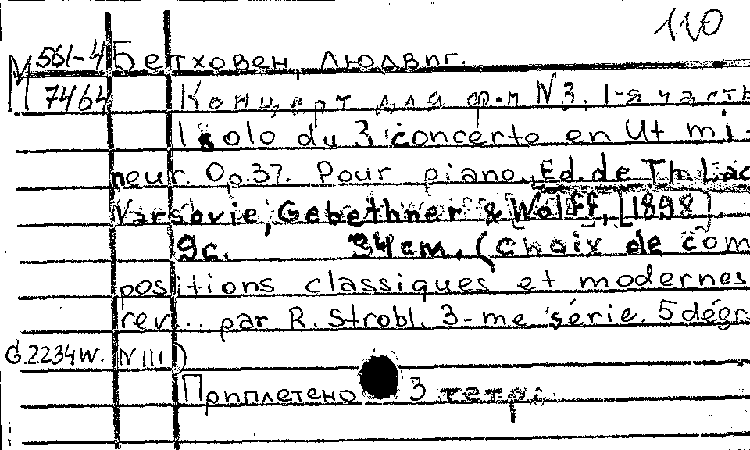 110
М 561-4 Бетховен, Людвиг.
7464 Концерт для ф-п N3. 1-я часть
1 solo du 3 concerto en Ut mi-
neur. Op. 37. Pour piano. Ed. de Th. Lac
Varsovie, Gebethner & Wolff, [1898].
9с. 34cm. (Choix de com
positions classiques et modernes
rev... par R. Strobl. 3-me série. 5 dégr
G.2234W. N III)
Приплетено 3 тетр.